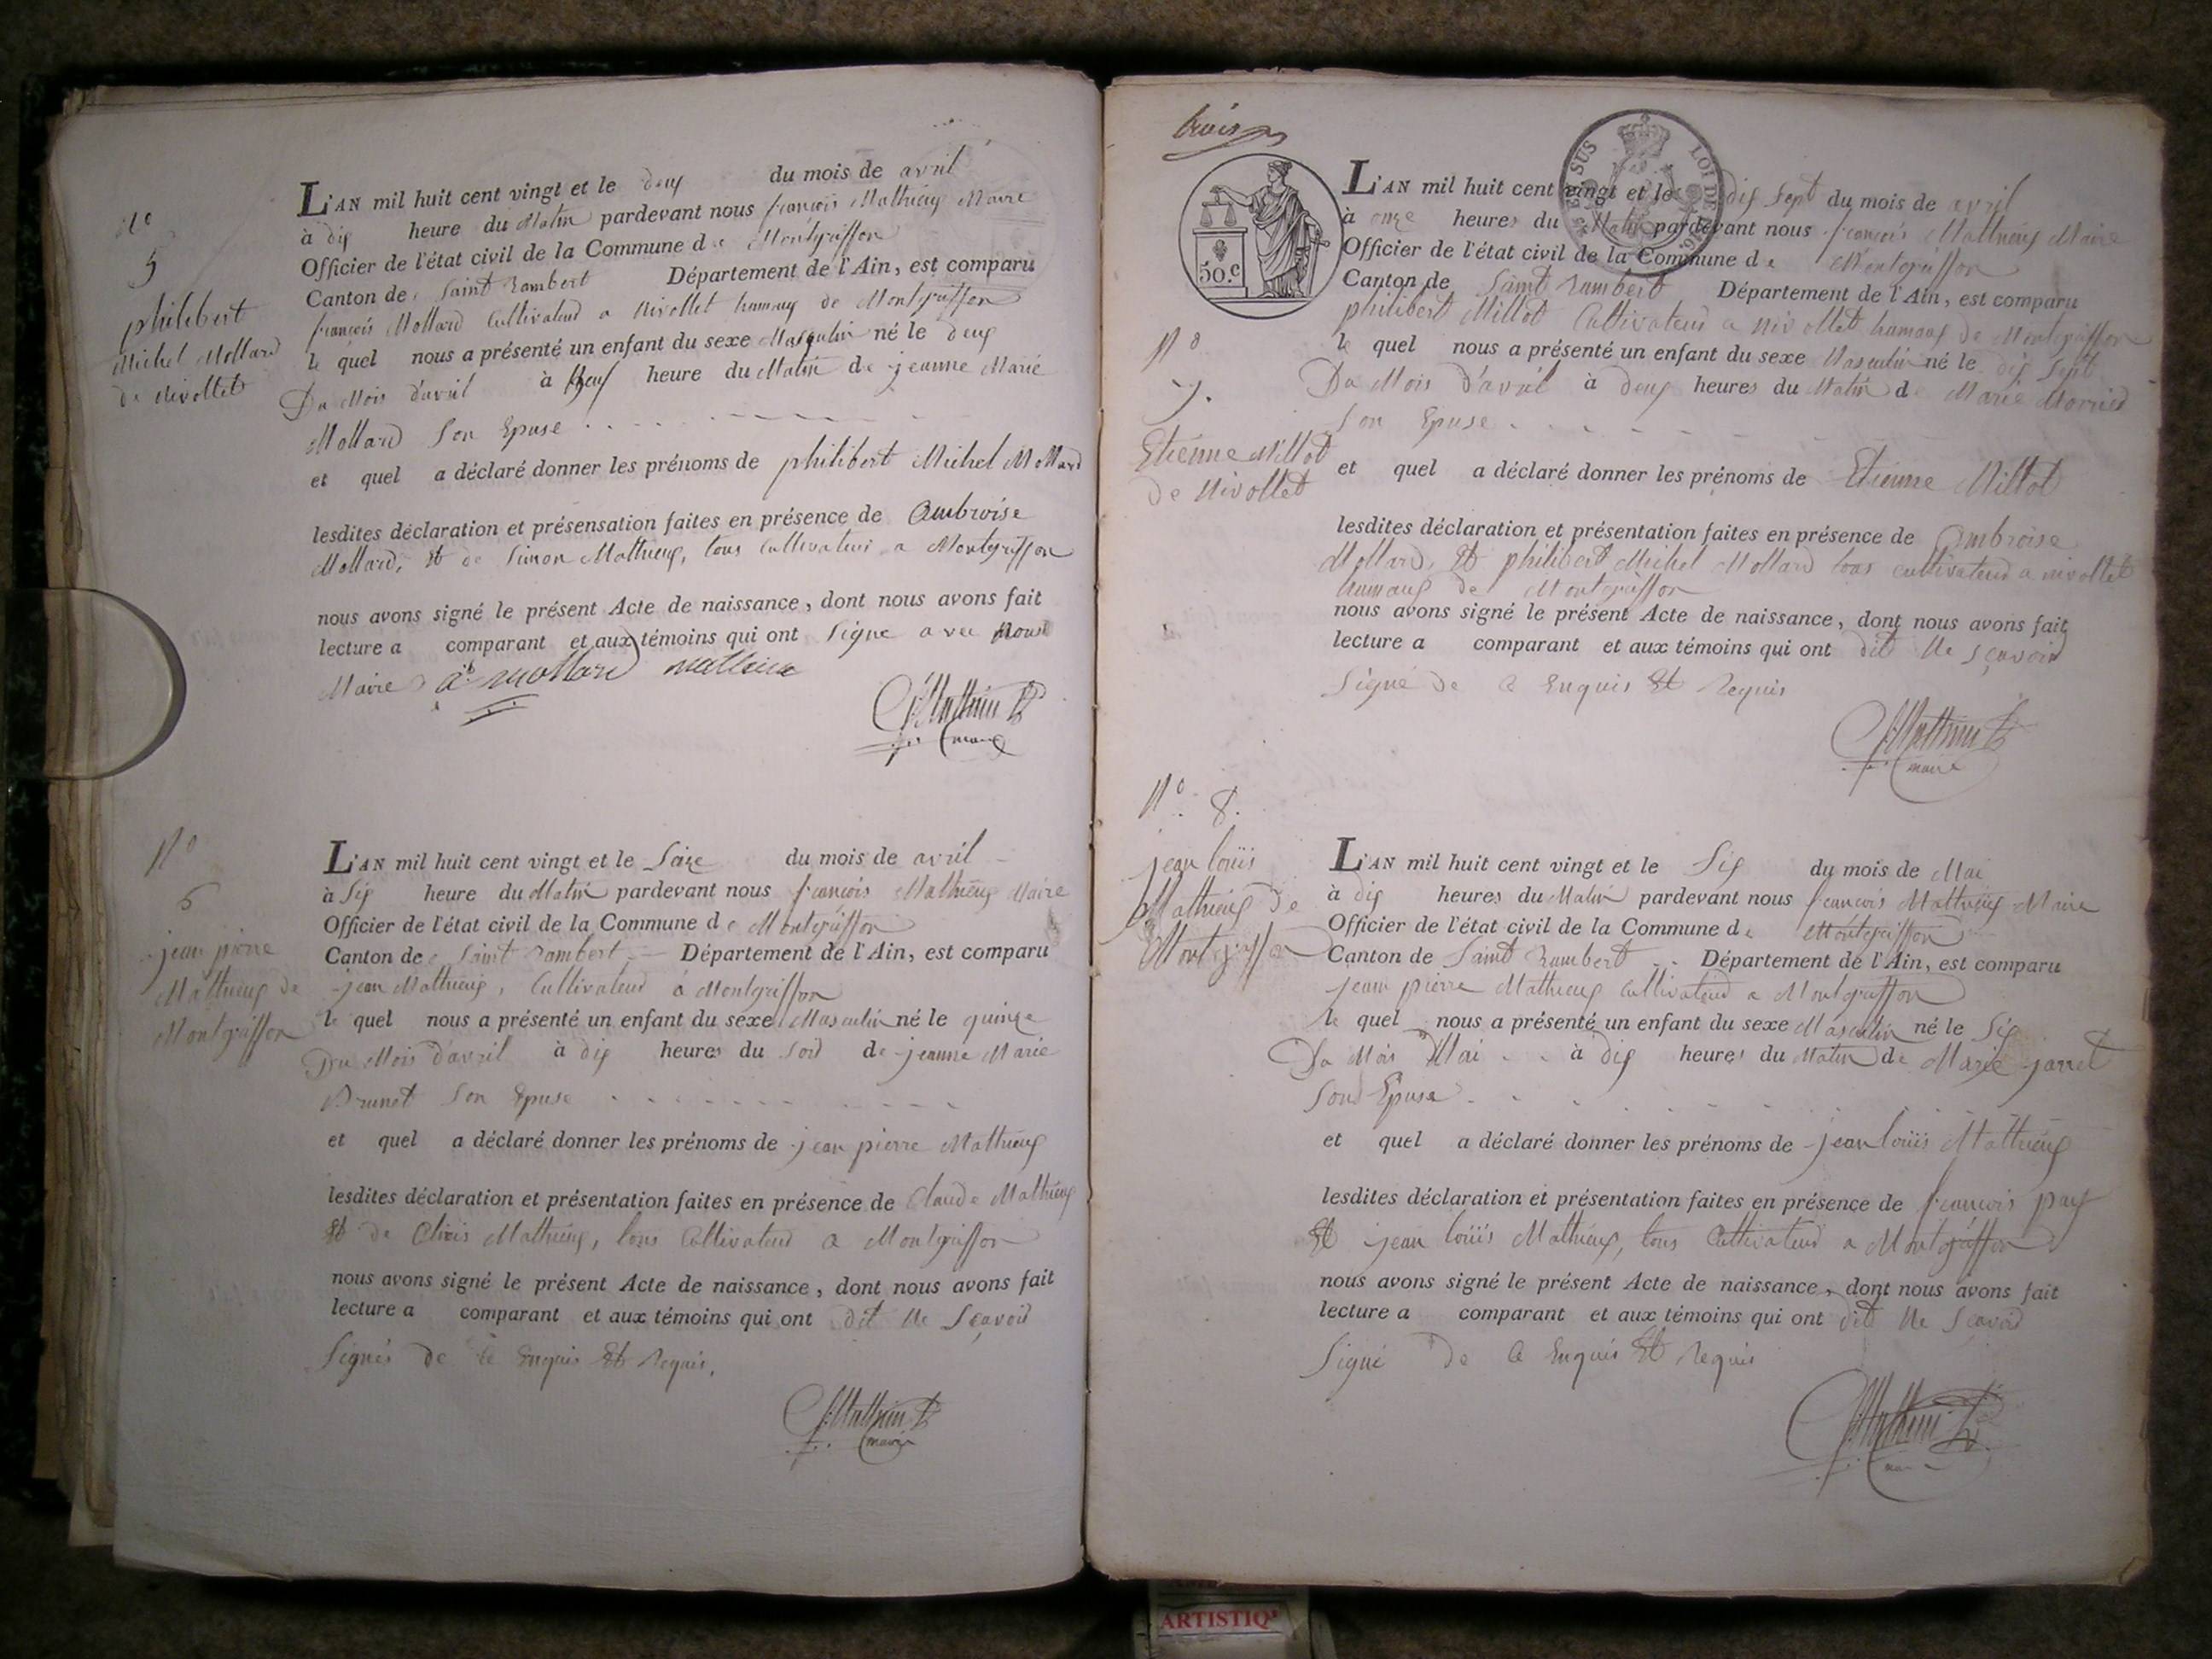 N.o
5
philibert
Michel Mollard
de Nivollet
L'AN mil huit cent vingt et le deux du mois de avril
à dix heure du Matin pardevant nous françois Mathieux Maire
Officier de l'état civil de la Commune de Montgriffon
Canton de Saint Rambert Département de l'Ain, est comparu
françois Mollard Cultivateur a Nivollet hamaux de Montgriffon
le quel nous a présenté un enfant du sexe Masculin né le deux
Du Mois d'avril à heure du Matin de jeanne Marie
Mollard Son Epuse
et quel a déclaré donner les prénoms de philibert Michel Mollard
lesdites déclaration et présensation faites en présence de Ambroise
Mollard, Et de Simon Mathieux, tous Cultivateur a Montgriffon
nous avons signé le présent Acte de naissance, dont nous avons fait
lecture a comparant et aux témoins qui ont Signe avec Nous
Maire a.b mollard mathieux
Mathieux
maire
N.o
6
jean pierre
Mathieux de
Montgriffon
L'AN mil huit cent vingt et le Saize du mois de avril
à Six heure du Matin pardevant nous françois Mathieux Maire
Officier de l'état civil de la Commune de Montgriffon
Canton de Saint Rambert Département de l'Ain, est comparu
jean Mathieux, Cultivateur à Montgriffon
le quel nous a présenté un enfant du sexe Masculin né le quinze
Du Mois d'avril à dix heures du Soir de jeanne Marie
Brunet Son Epuse
et quel a déclaré donner les prénoms de jean pierre Mathieux
lesdites déclaration et présentation faites en présence de Claude Mathieux
Et de Mathieux, tous Cultivateur a Montgriffon
nous avons signé le présent Acte de naissance, dont nous avons fait
lecture a comparant et aux témoins qui ont dit Ne Sçavoir
Signés de ce Enquis Et Requis.
Mathieux
maire
trois
50.c
SUS LOI DE
N.o
7.
Etienne Millot
de Nivollet
L'AN mil huit cent vingt et le dix Sept du mois de avril
à onze heures du Matin pardevant nous françois Mathieux Maire
Officier de l'état civil de la Commune de Montgriffon
Canton de Saint Rambert Département de l'Ain, est comparu
philibert Millot Cultivateur a nivollet hamaux de Montgriffon
le quel nous a présenté un enfant du sexe Masculin né le dix Sept
Du Mois d'avril à deux heures du Matin de Marie
Son Epuse
et quel a déclaré donner les prénoms de Etienne Millot
lesdites déclaration et présentation faites en présence de Ambroise
Mollard, Et philibert Michel Mollard tous cultivateur a nivollet
hamaux de Montgriffon
nous avons signé le présent Acte de naissance, dont nous avons fait
lecture a comparant et aux témoins qui ont dit Ne Sçavoir
Signe de Ce Enquis Et Requis
Mathieux
maire
N.o 8.
jean loüis
Mathieux de
Montgriffon
L'AN mil huit cent vingt et le Six du mois de Mai
à dix heures du Matin pardevant nous françois Mathieux Maire
Officier de l'état civil de la Commune de Montgriffon
Canton de Saint Rambert Département de l'Ain, est comparu
jean pierre Mathieux Cultivateur a Montgriffon
le quel nous a présenté un enfant du sexe Masculin né le Six
Du Mois Mai à dix heures du Matin de Marie jarret
Son Epuse
et quel a déclaré donner les prénoms de jean loüis Mathieux
lesdites déclaration et présentation faites en présence de françois
Et jean loüis Mathieux, tous Cultivateur a Montgriffon
nous avons signé le présent Acte de naissance, dont nous avons fait
lecture a comparant et aux témoins qui ont dit Ne Sçavoir
Signé de Ce Enquis Et Requis
Mathieux
ARTISTIQ